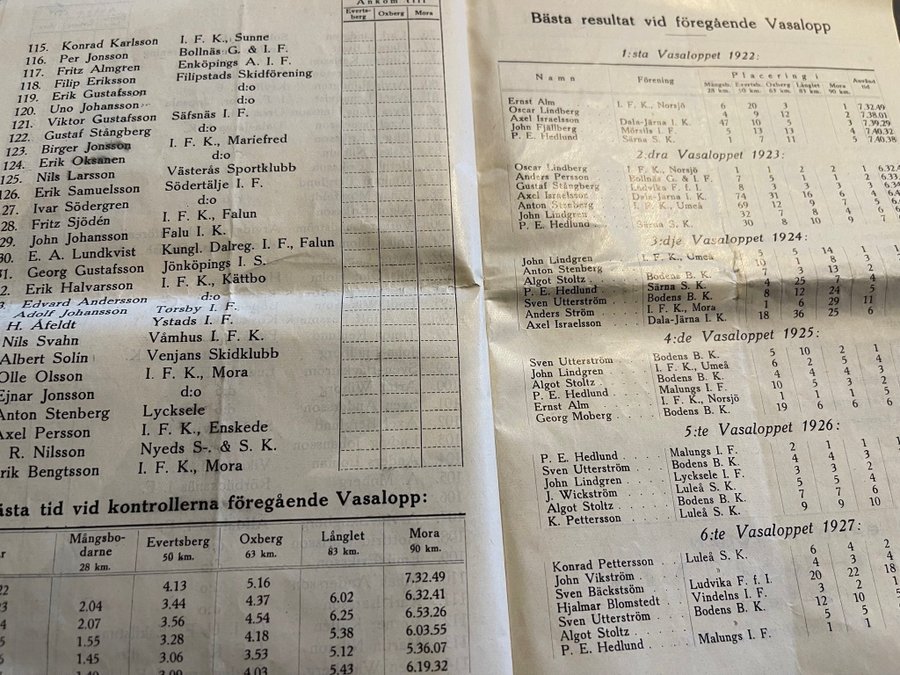 Ankom till
Evertsberg Oxberg Mora
115. Konrad Karlsson I. F. K., Sunne
116. Per Jonsson Bollnäs G. & I. F.
117. Fritz Almgren Enköpings A. I. F.
118. Filip Eriksson Filipstads Skidförening
119. Erik Gustafsson d:o
120. Uno Johansson d:o
121. Viktor Gustafsson Säfsnäs I. F.
122. Gustaf Stångberg d:o
123. Birger Jonsson I. F. K., Mariefred
124. Erik Oksanen d:o
125. Nils Larsson Västerås Sportklubb
126. Erik Samuelsson Södertälje I. F.
27. Ivar Södergren d:o
28. Fritz Sjödén I. F. K., Falun
29. John Johansson Falu I. K.
30. E. A. Lundkvist Kungl. Dalreg. I. F., Falun
31. Georg Gustafsson Jönköpings I. S.
Erik Halvarsson I. F. K., Kättbo
Edvard Andersson d:o
Adolf Johansson Torsby I. F.
H. Åfeldt Ystads I. F.
Nils Svahn Våmhus I. F. K.
Albert Solin Venjans Skidklubb
Olle Olsson I. F. K., Mora
Ejnar Jonsson d:o
Anton Stenberg Lycksele
Axel Persson I. F. K., Enskede
R. Nilsson Nyeds S-. & S. K.
Erik Bengtsson I. F. K., Mora
ästa tid vid kontrollerna föregående Vasalopp:
Mångsbodarne 28 km. Evertsberg 50 km. Oxberg 63 km. Långlet 83 km. Mora 90 km.
22 4.13 5.16 7.32.49
23 2.04 3.44 4.37 6.02 6.32.41
2.07 3.56 4.54 6.25 6.53.26
1.55 3.28 4.18 5.38 6.03.55
1.45 3.06 3.53 5.12 5.36.07
4.03 5.43 6.19.32
Bästa resultat vid föregående Vasalopp
1:sta Vasaloppet 1922:
Namn Förening Placering i
Mångsb. 28 km. Evertsb. 50 km. Oxberg 63 km. Långlet 83 km. Mora 90 km. tid
Ernst Alm I. F. K., Norsjö 6 20 3 1 7.32.49
Oscar Lindberg 4 9 12 2 7.38.01
Axel Israelsson Dala-Järna I. K. 47 10 5 3 7.39.29
John Fjällberg Mörsils I. F. 5 13 13 4 7.40.32
P. E. Hedlund Särna S. K. 1 7 11 5 7.40.38
2:dra Vasaloppet 1923:
Oscar Lindberg I. F. K., Norsjö 1 1 2 2 1 6.32.4
Anders Persson Bollnäs G. & I. F. 1 5 1 1 2 6.33.
Gustaf Stångberg Ludvika F. f. I. 8 3 3 3 3
Axel Israelsson Dala-Järna I. K. 74 31 16 6 4
Anton Stenberg I. F. K., Umeå 69 12 9 7 5
John Lindgren 32 7 8 4 6
P. E. Hedlund Särna S. K. 30 8 10 9 7
3:dje Vasaloppet 1924:
John Lindgren I. F. K., Umeå 5 5 14 1
Anton Stenberg 10 1 8 3
Algot Stoltz Bodens B. K. 7 3 13 2
P. E. Hedlund Särna S. K. 4 25 7 4
Sven Utterström Bodens B. K. 8 12 24 5
Anders Ström I. F. K., Mora 1 6 29 11
Axel Israelsson Dala-Järna I. K. 18 36 25 6
4:de Vasaloppet 1925:
Sven Utterström Bodens B. K. 5 10 2 1
John Lindgren I. F. K., Umeå 6 2 5 4
Algot Stoltz Bodens B. K. 4 4 4 3
P. E. Hedlund Malungs I. F. 10 5 3 2
Ernst Alm I. F. K., Norsjö 1 1 1 5
Georg Moberg Bodens B. K. 19 6 6 6
5:te Vasaloppet 1926:
P. E. Hedlund Malungs I. F. 2 1 1 1
Sven Utterström Bodens B. K. 4 4 3
John Lindgren Lycksele I. F. 3 3 2
J. Wickström Luleå S. K. 5 5 4
Algot Stoltz Bodens B. K. 7 7 6
K. Pettersson Luleå S. K. 9 9 10
6:te Vasaloppet 1927:
Konrad Pettersson Luleå S. K. 6 4 2
John Vikström 4 3 4
Sven Bäckstsöm Ludvika F. f. I. 20 22 18
Hjalmar Blomstedt Vindelns I. F. 3 2 1
Sven Utterström Bodens B. K. 12 10
Algot Stoltz 5 5
P. E. Hedlund Malungs I. F. 1 1